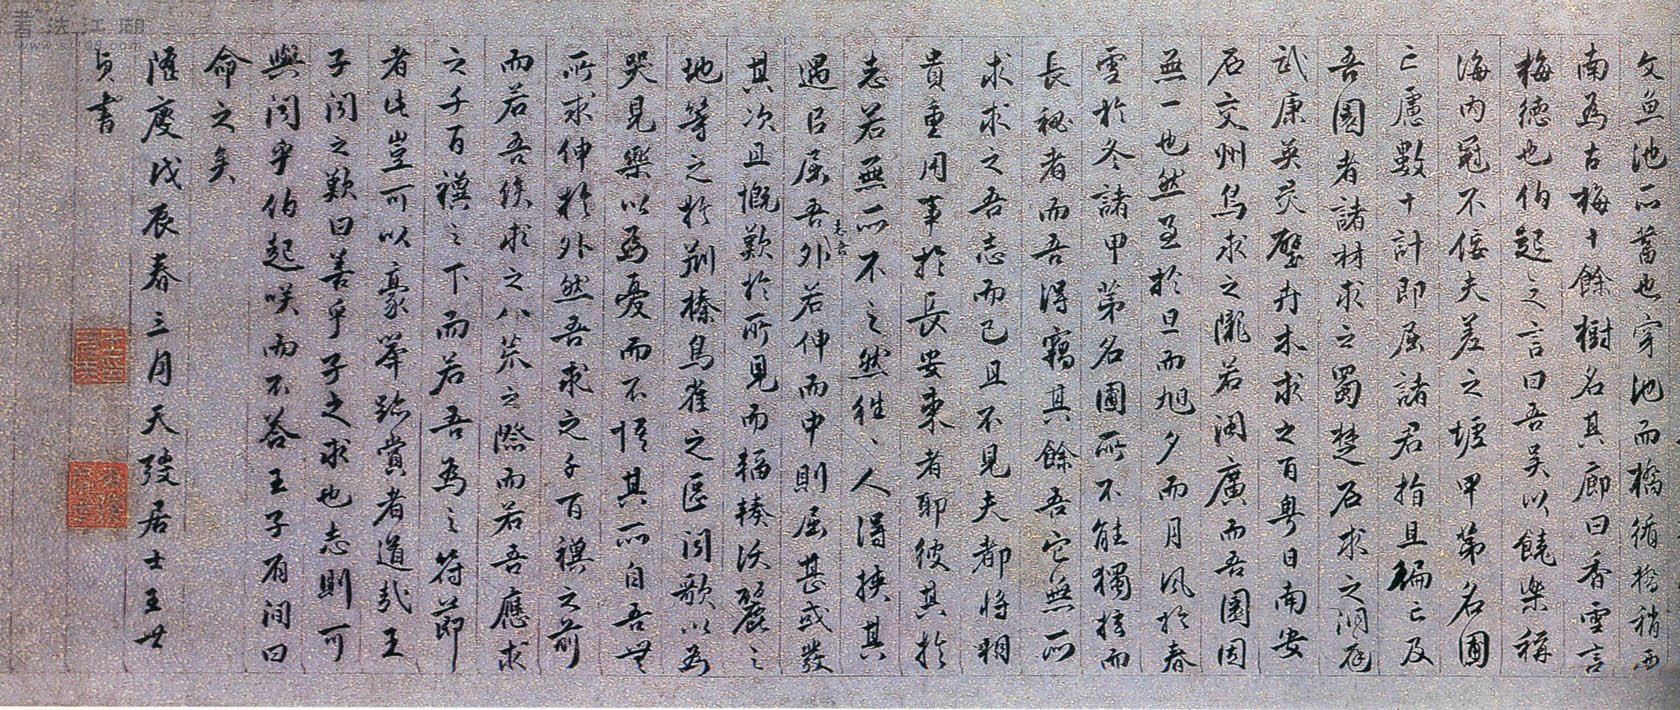 文魚池所蓄也穿池而橋循橋稍西
南為古梅十餘樹名其廊曰香雪言
梅德也伯起之言曰吾吳以饒樂稱
海內冠不佞夫差之墟甲第名圃
亡慮數十計即屈諸君指且徧亡及
吾園者諸材求之蜀楚石求之洞庭
武康英靈壁卉木求之百粵日南安
石交州鳥求之隴若閩廣而吾園固
無一也然至於旦而旭夕而月風於春
雪於冬諸甲第名圃所不能獨擅而
長秘者而吾得竊其餘吾它無所
求求之吾志而已且不見夫都將相
貴重用事於長安東者耶彼其於
志若無所不之然往、人得挾其
遇以屈吾外若伸而中則屈甚或發
志吾
其次且慨歎於所見而輻輳沃麗之
地等之於荊榛鳥雀之區聞歌以為
哭見樂以為憂而不悟其所自吾無
所求伸於外然吾求之千百禩之前
而若吾俟求之八荒之際而若吾應求
之千百禩之下而若吾為之符節
者此豈可以豪舉跡賞者道哉王
子聞之歎曰善乎子之求也志則可
與聞乎伯起咲而不答王子有間曰
命之矣
隆慶戊辰春三月天弢居士王世
貞書
書法江湖
www.sf108.com